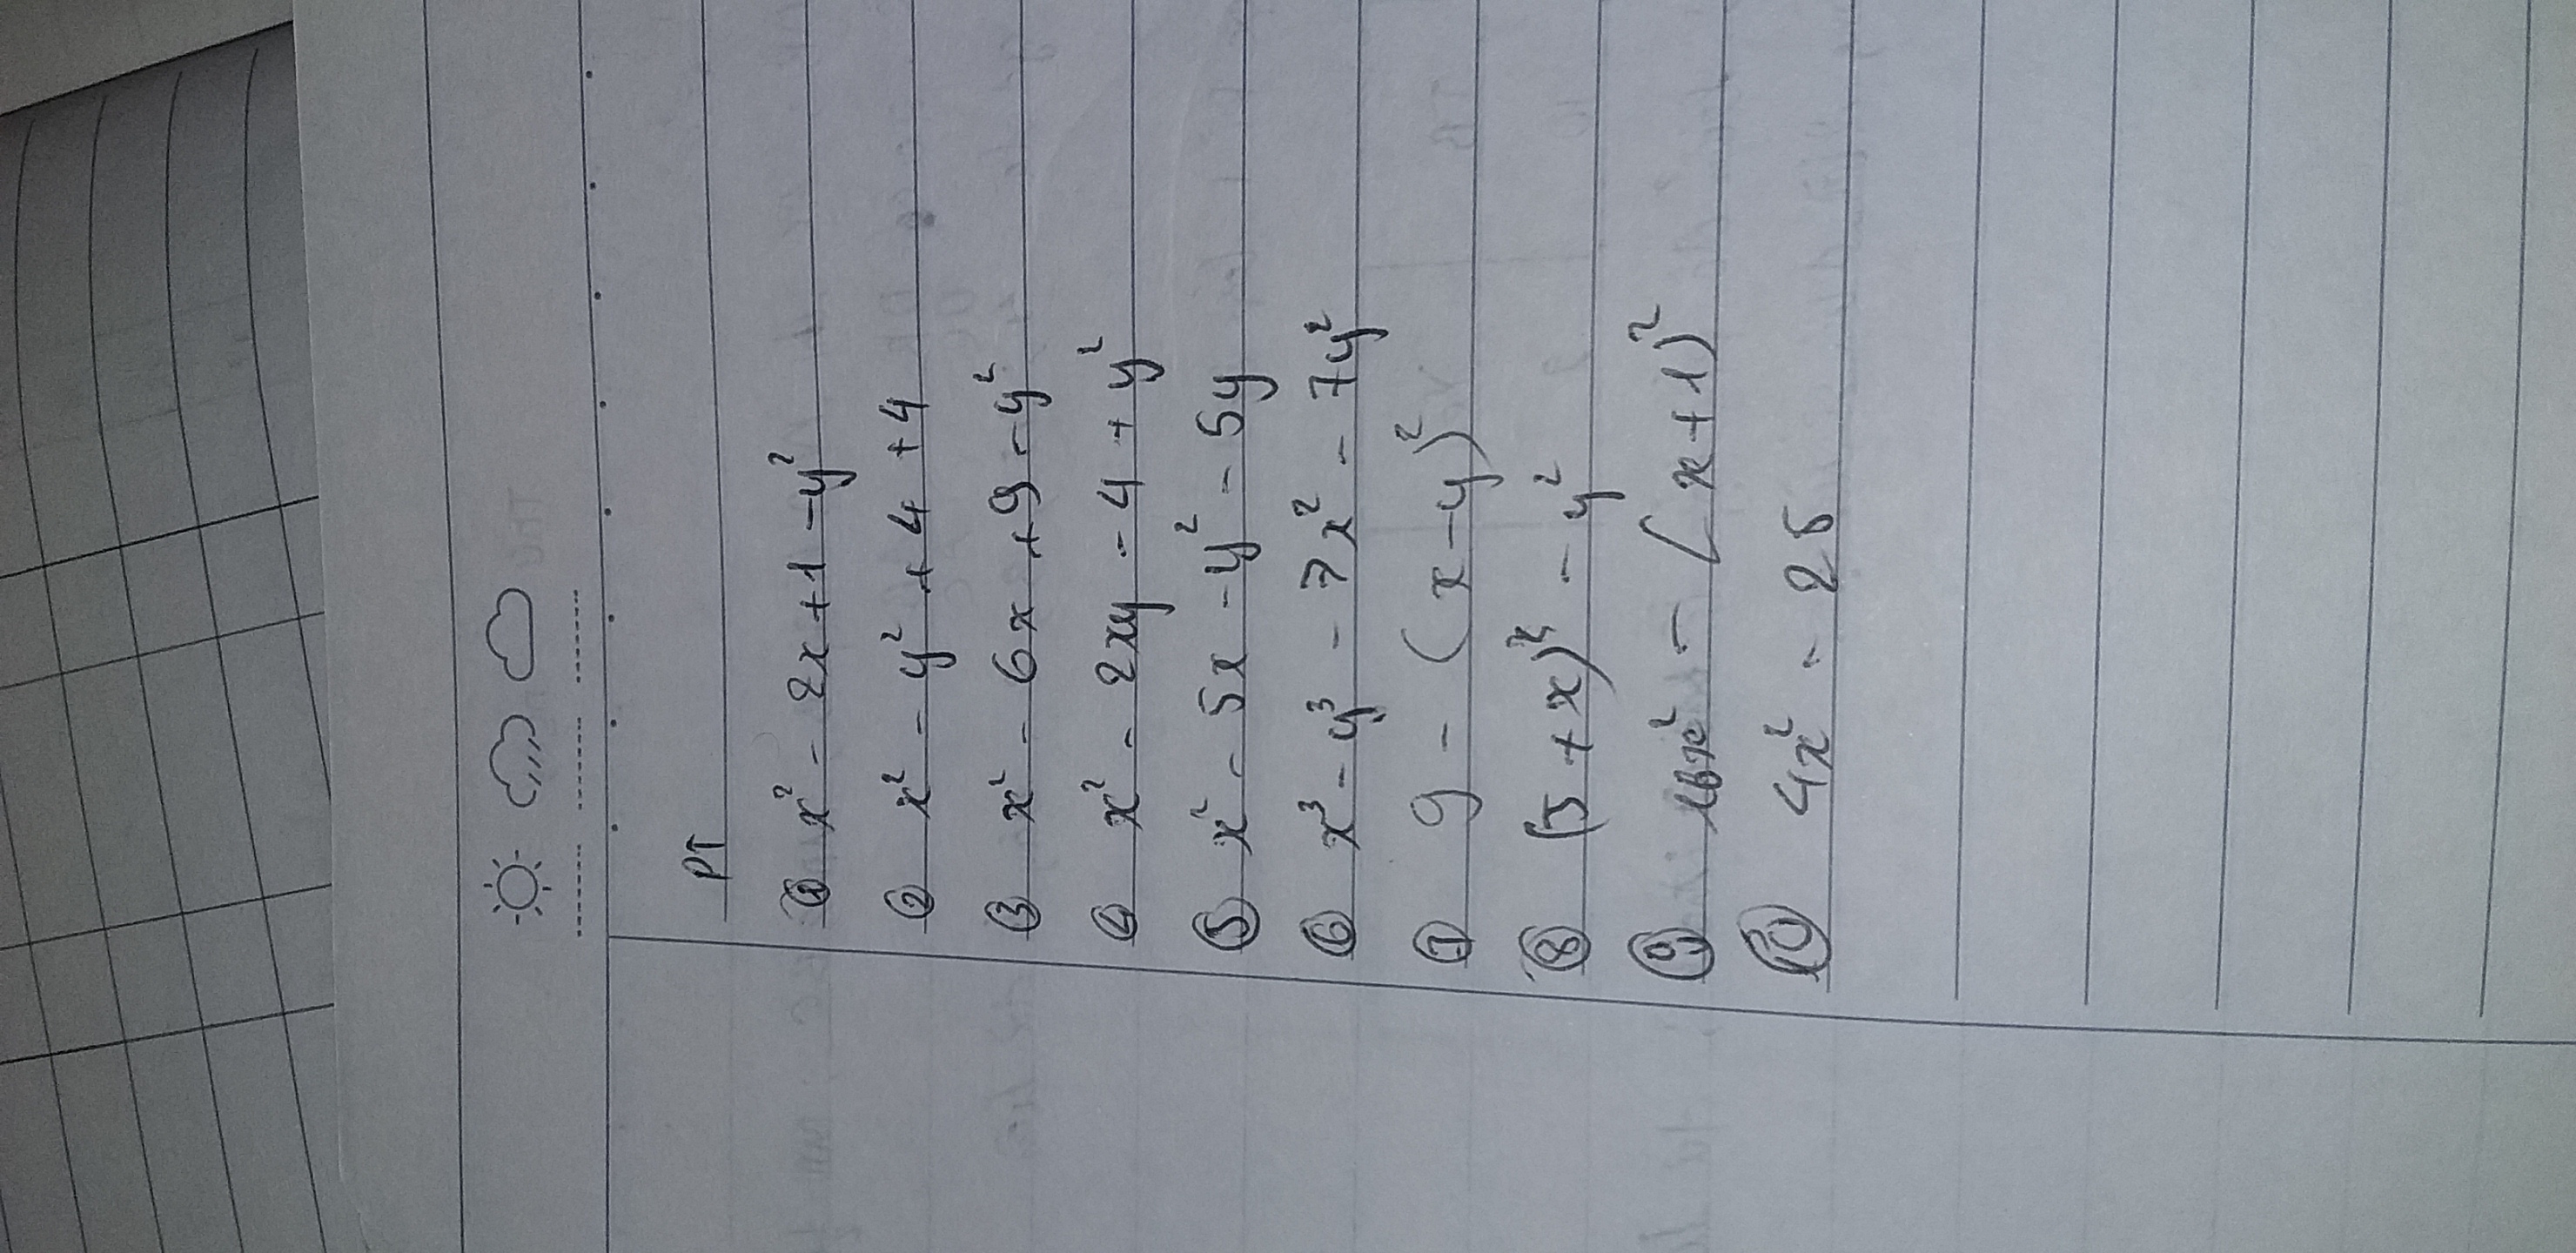 PT
① x² - 2x + 1 - y²
② x² - y² + 4 + 4
③ x² - 6x + 9 - y²
④ x² - 2xy - 4 + y²
⑤ x² - 5x - y² - 5y
⑥ x³ - y³ - 7x² - 7y²
⑦ 9 - (x - y)²
⑧ (5 + x)² - y²
⑨ 16x² - (x + 1)²
⑩ 4x² - 25